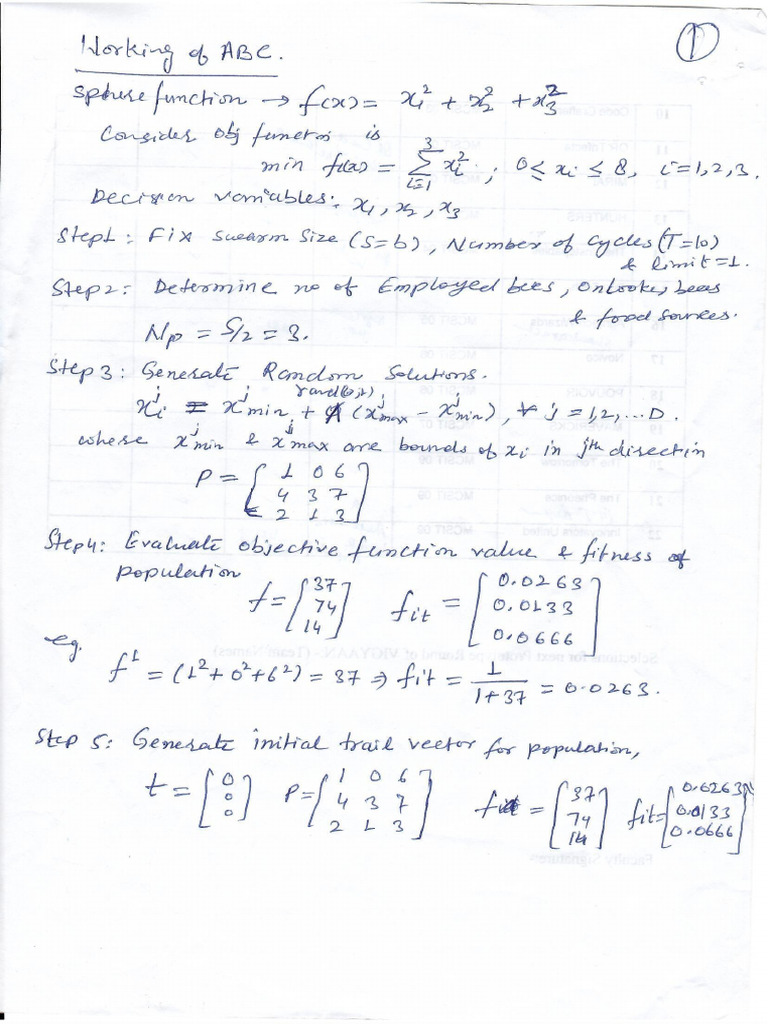 ①
Working of ABC.
Sphere function → f(x) = x₁² + x₂² + x₃²
Consider obj function is
min f(x) = Σᵢ₌₁³ xᵢ² ; 0 ≤ xᵢ ≤ 8, i=1,2,3.
Decision variables: x₁, x₂, x₃
Step1: Fix swarm size (S=6), Number of cycles (T=10)
& limit=1.
Step2: Determine no of Employed bees, onlooker bees
& food sources.
Np = S/2 = 3.
Step 3: Generate Random Solutions.
rand(0,1)
xᵢʲ = xʲmin + (xʲmax - xʲmin), ∀ j = 1,2,...D.
where xʲmin & xʲmax are bounds of xᵢ in jth direction
P = [1 0 6
4 3 7
2 1 3]
Step4: Evaluate objective function value & fitness of
population
f = [37 74 14] fit = [0.0263 0.0133 0.0666]
eg.
f¹ = (1²+0²+6²) = 37 ⇒ fit = 1/(1+37) = 0.0263.
Step 5: Generate initial trail vector for population,
t = [0 0 0] P = [1 0 6
4 3 7
2 1 3] f = [37 74 14] fit = [0.0263 0.0133 0.0666]